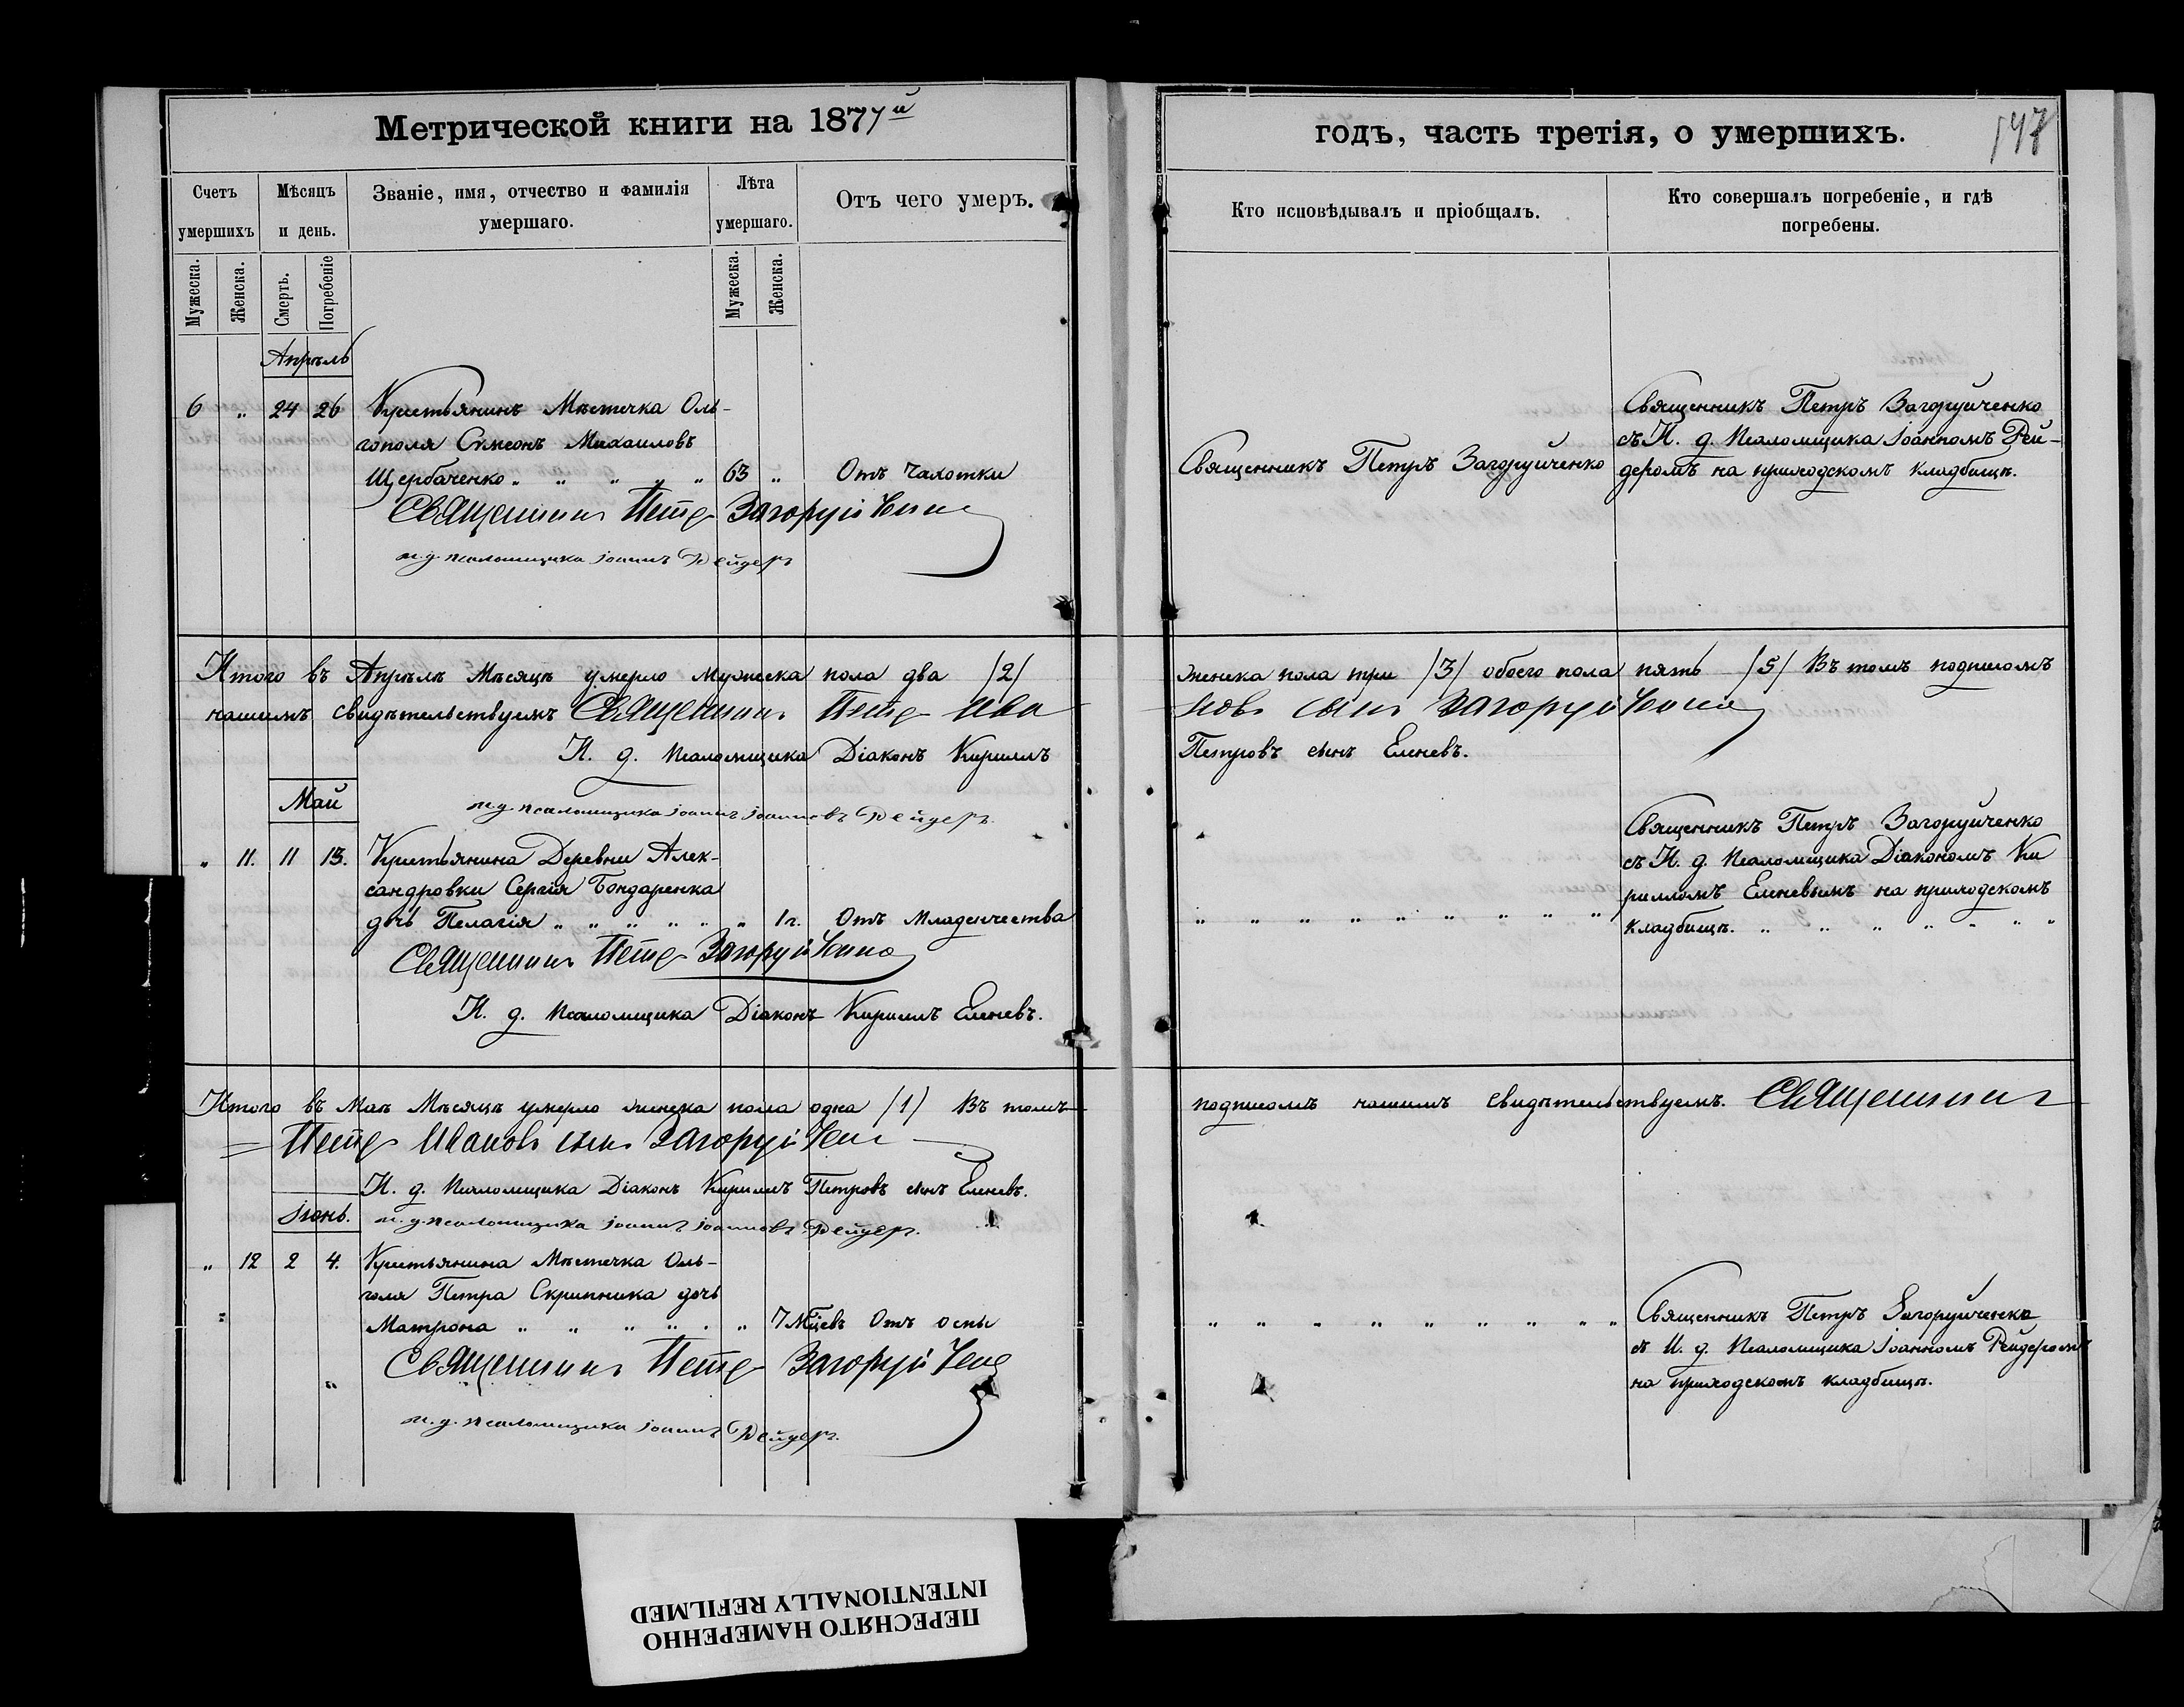 Метрической книги на 1877й
годъ, часть третія, о умершихъ.
147
Счетъ умершихъ
Мѣсяцъ и день.
Званіе, имя, отчество и фамилія умершаго.
Лѣта умершаго.
Отъ чего умеръ.
Кто исповѣдывалъ и пріобщалъ.
Кто совершалъ погребеніе, и гдѣ погребены.
Мужеска.
Женска.
Смерть.
Погребеніе
Мужеска.
Женска.
Апрѣль
6 „ 24 26 Крестьянинъ Мѣстечка Оль-
гополя Симеонъ Михаиловъ
Щербаченко „ „ „ „ „ 63 „ Отъ Чахотки
Священникъ Петръ Загоруйченко
Священникъ Петръ Загоруйченко
съ И. д. Псаломщика Іоанномъ Рей-
деромъ на приходскомъ кладбищѣ.
Священникъ Петръ Загоруйченко
и. д. псаломщика Іоаннъ Рейдеръ
Итого въ Апрѣлѣ Мѣсяцѣ умерло мужеска пола два /2/ женска пола три /3/ обоего пола пять /5/ Въ томъ подписомъ
нашимъ свидѣтельствуемъ Священникъ Петръ Ивановъ сынъ Загоруйченко
И. д. Псаломщика Діаконъ Кириллъ Петровъ сынъ Еленевъ.
и. д. псаломщика Іоаннъ Іоанновъ Рейдеръ.
Май
„ 11. 11 13. Крестьянина Деревни Алек-
сандровки Сергія Бондаренка
дочь Пелагія „ „ „ „ „ „ 1г. Отъ Младенчества
„ „ „ „ „ „ „ „ „
Священникъ Петръ Загоруйченко
съ И. д. Псаломщика Діакономъ Ки
рилломъ Еленевымъ на приходскомъ
кладбищѣ. „ „ „ „ „ „ „
Священникъ Петръ Загоруйченко
И. д. Псаломщика Діаконъ Кириллъ Еленевъ.
Итого въ Маѣ Мѣсяцѣ умерло женска пола одна /1/ Въ томъ подписомъ нашимъ свидѣтельствуемъ. Священникъ
Петръ Ивановъ сынъ Загоруйченко
И. д. Псаломщика Діаконъ Кириллъ Петровъ сынъ Еленевъ.
Іюнь.
и. д. псаломщика Іоаннъ Іоанновъ Рейдеръ.
„ 12 2 4. Крестьянина Мѣстечка Оль-
голя Петра Скрипника дочь
Матрона „ „ „ „ „ „ 7 Мцевъ Отъ оспы
„ „ „ „ „ „ „ „ „
Священникъ Петръ Загоруйченко
съ И. д. Псаломщика Іоанномъ Рейдеромъ
на приходскомъ кладбищѣ.
Священникъ Петръ Загоруйченко
и. д. псаломщика Іоаннъ Рейдеръ.
ПЕРЕСНЯТО НАМЕРЕННО
INTENTIONALLY REFILMED